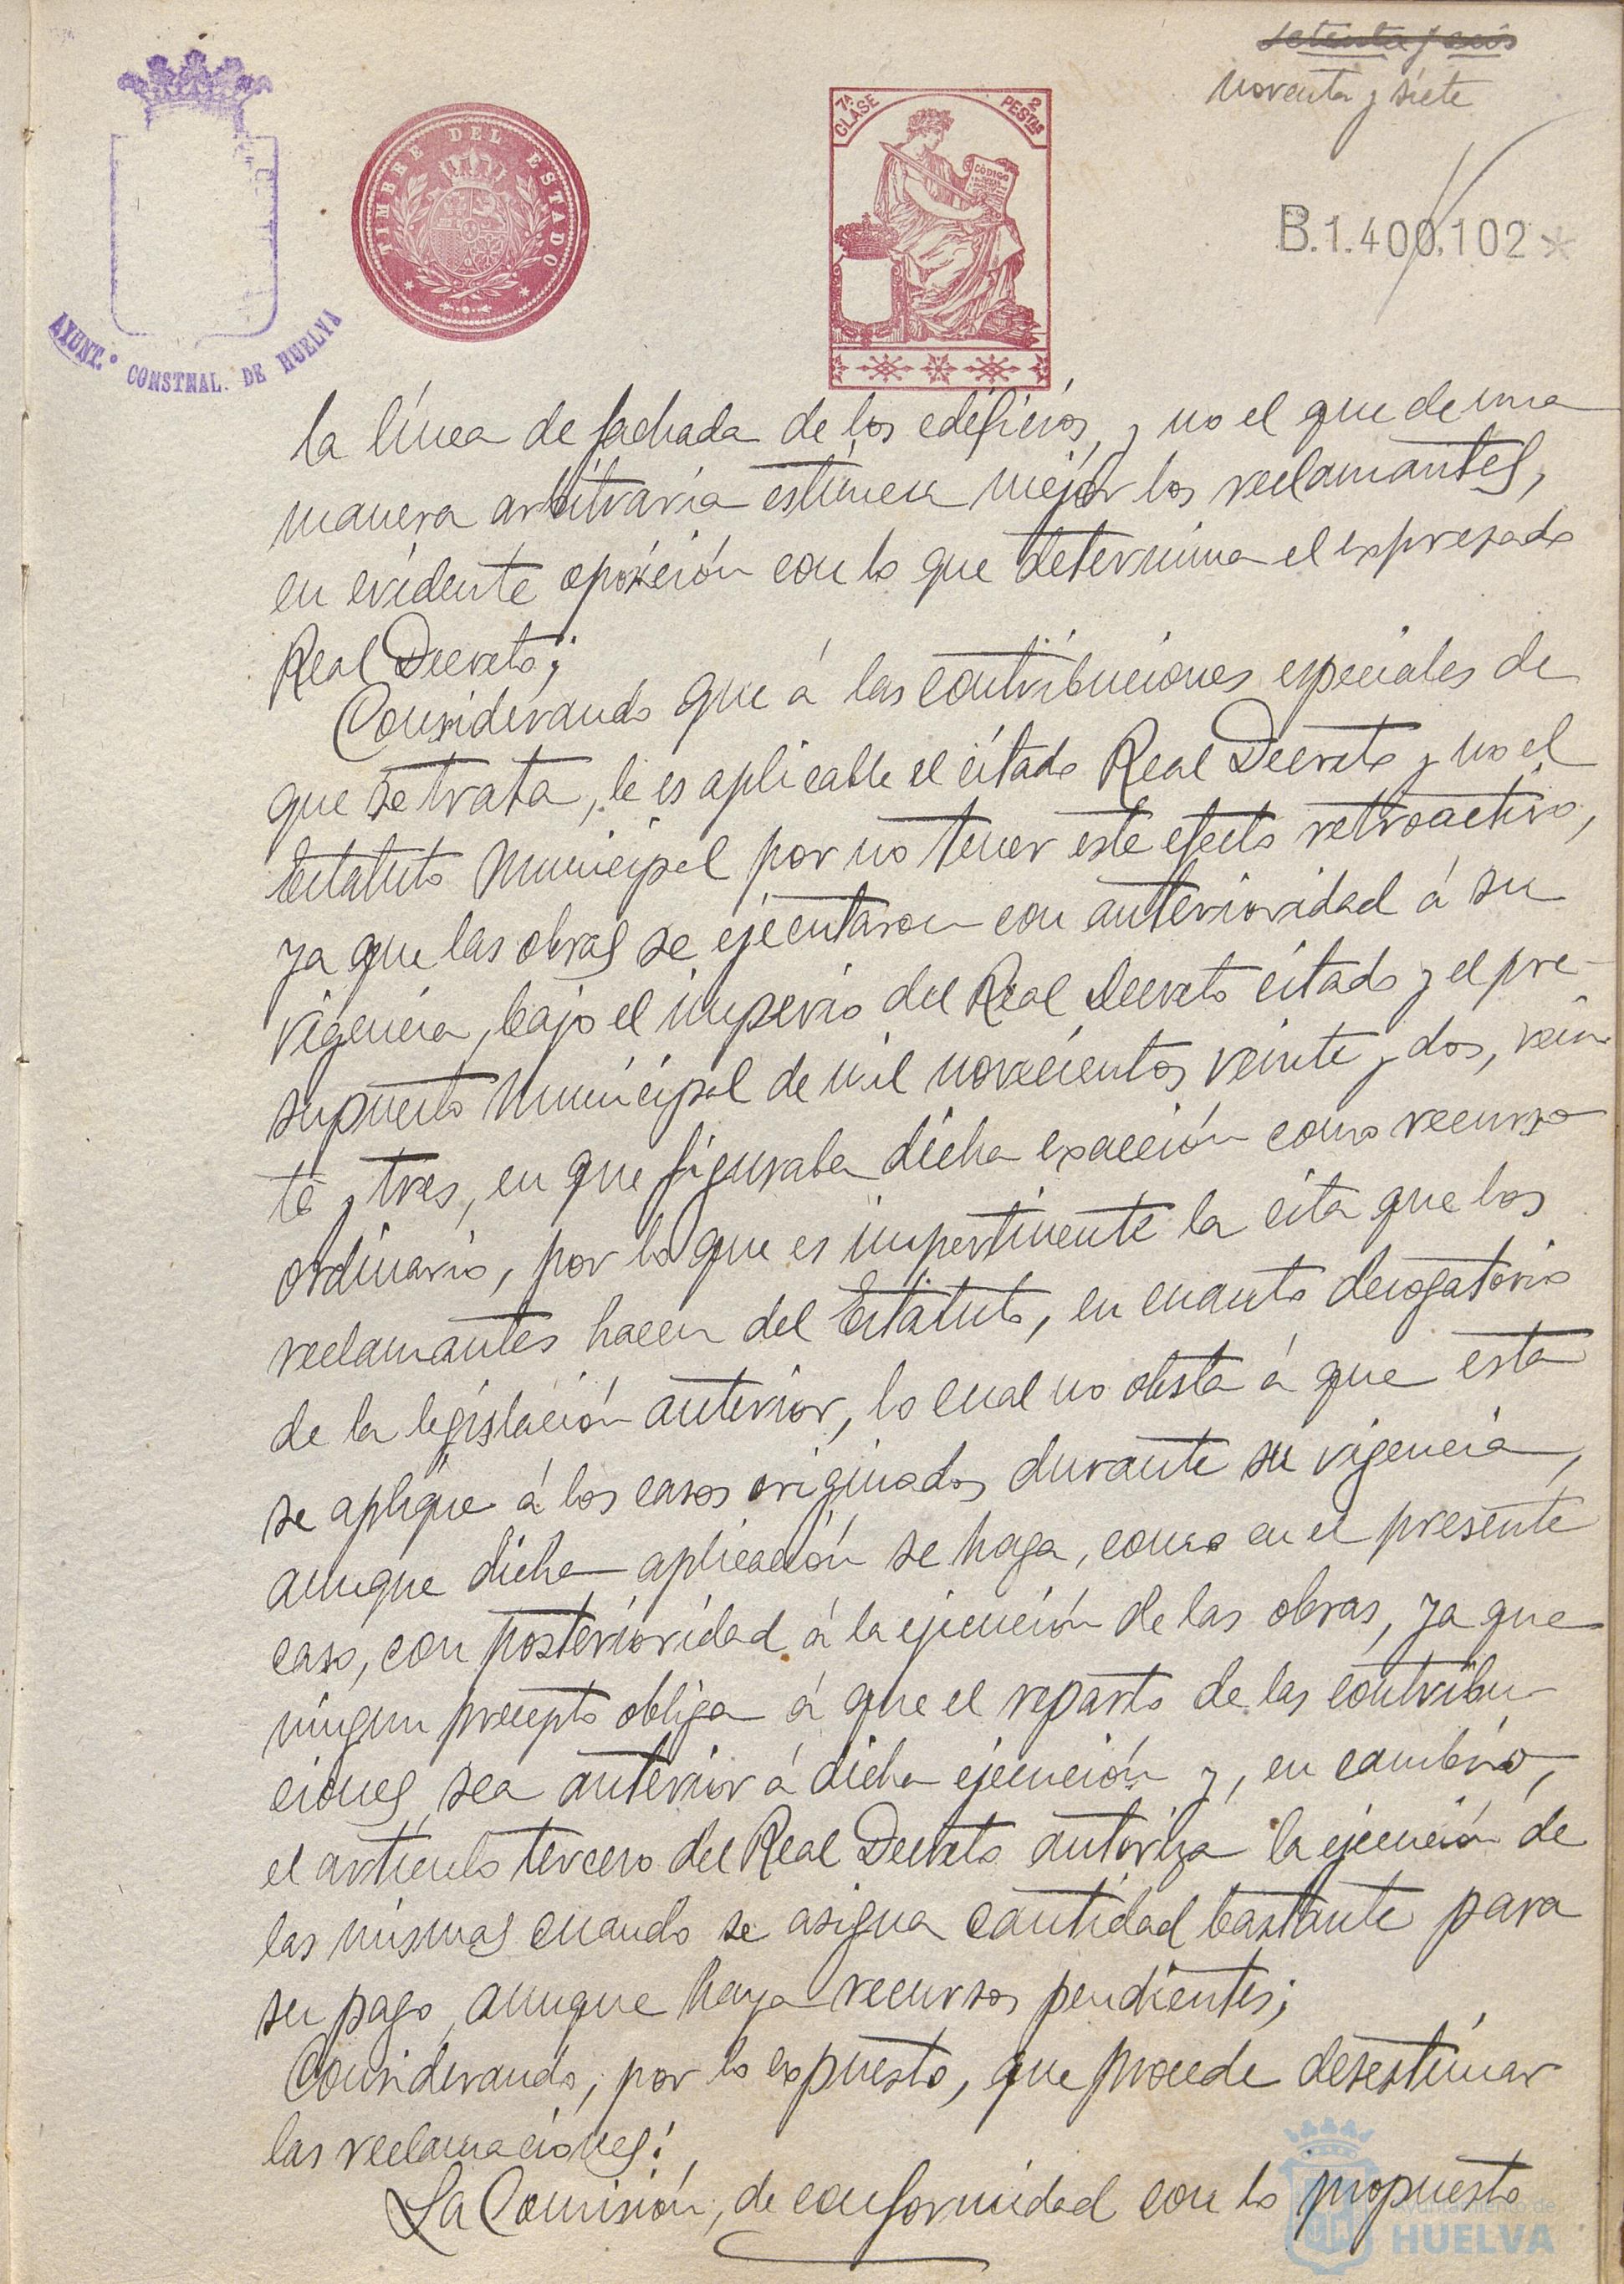 setenta y seis
noventa y siete
7ª CLASE
2 PESTAS
TIMBRE DEL ESTADO
CÓDIGO
B.1.400.102*
AYUNT.º CONSTNAL. DE HUELVA
la línea de fachada de los edificios, y no el que de una
manera arbitraria estimen mejor los reclamantes,
en evidente oposición con lo que determina el expresado
Real Decreto;
Considerando que á las contribuciones especiales de
que se trata, le es aplicable el citado Real Decreto y no el
Estatuto Municipal por no tener este efecto retroactivo,
ya que las obras se ejecutaron con anterioridad á su
vigencia, bajo el imperio del Real Decreto citado y el pre-
supuesto Municipal de mil novecientos veinte y dos, vein-
te y tres, en que figuraba dicha exacción como recurso
ordinario, por lo que es impertinente la cita que los
reclamantes hacen del Estatuto, en cuanto derogatorio
de la legislación anterior, lo cual no obsta á que esta
se aplique á los casos originados durante su vigencia,
aunque dicha aplicación se haga, como en el presente
caso, con posterioridad á la ejecución de las obras, ya que
ningun precepto obliga á que el reparto de las contribu-
ciones sea anterior á dicha ejecución y, en cambio,
el artículo tercero del Real Decreto autoriza la ejecución de
las mismas cuando se asigna cantidad bastante para
su pago, aunque haya recursos pendientes;
Considerando, por lo expuesto, que procede desestimar
las reclamaciones:
La Comisión, de conformidad con lo propuesto
Ayuntamiento de
HUELVA